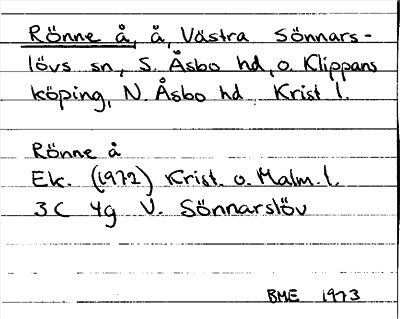 Rönne å, å, Västra Sönnars-
lövs sn, S. Åsbo hd, o. Klippans
köping, N. Åsbo hd, Krist l.
Rönne å
Ek. (1972) Krist. o. Malm. l.
3C 4g V. Sönnarslöv
BME 1973